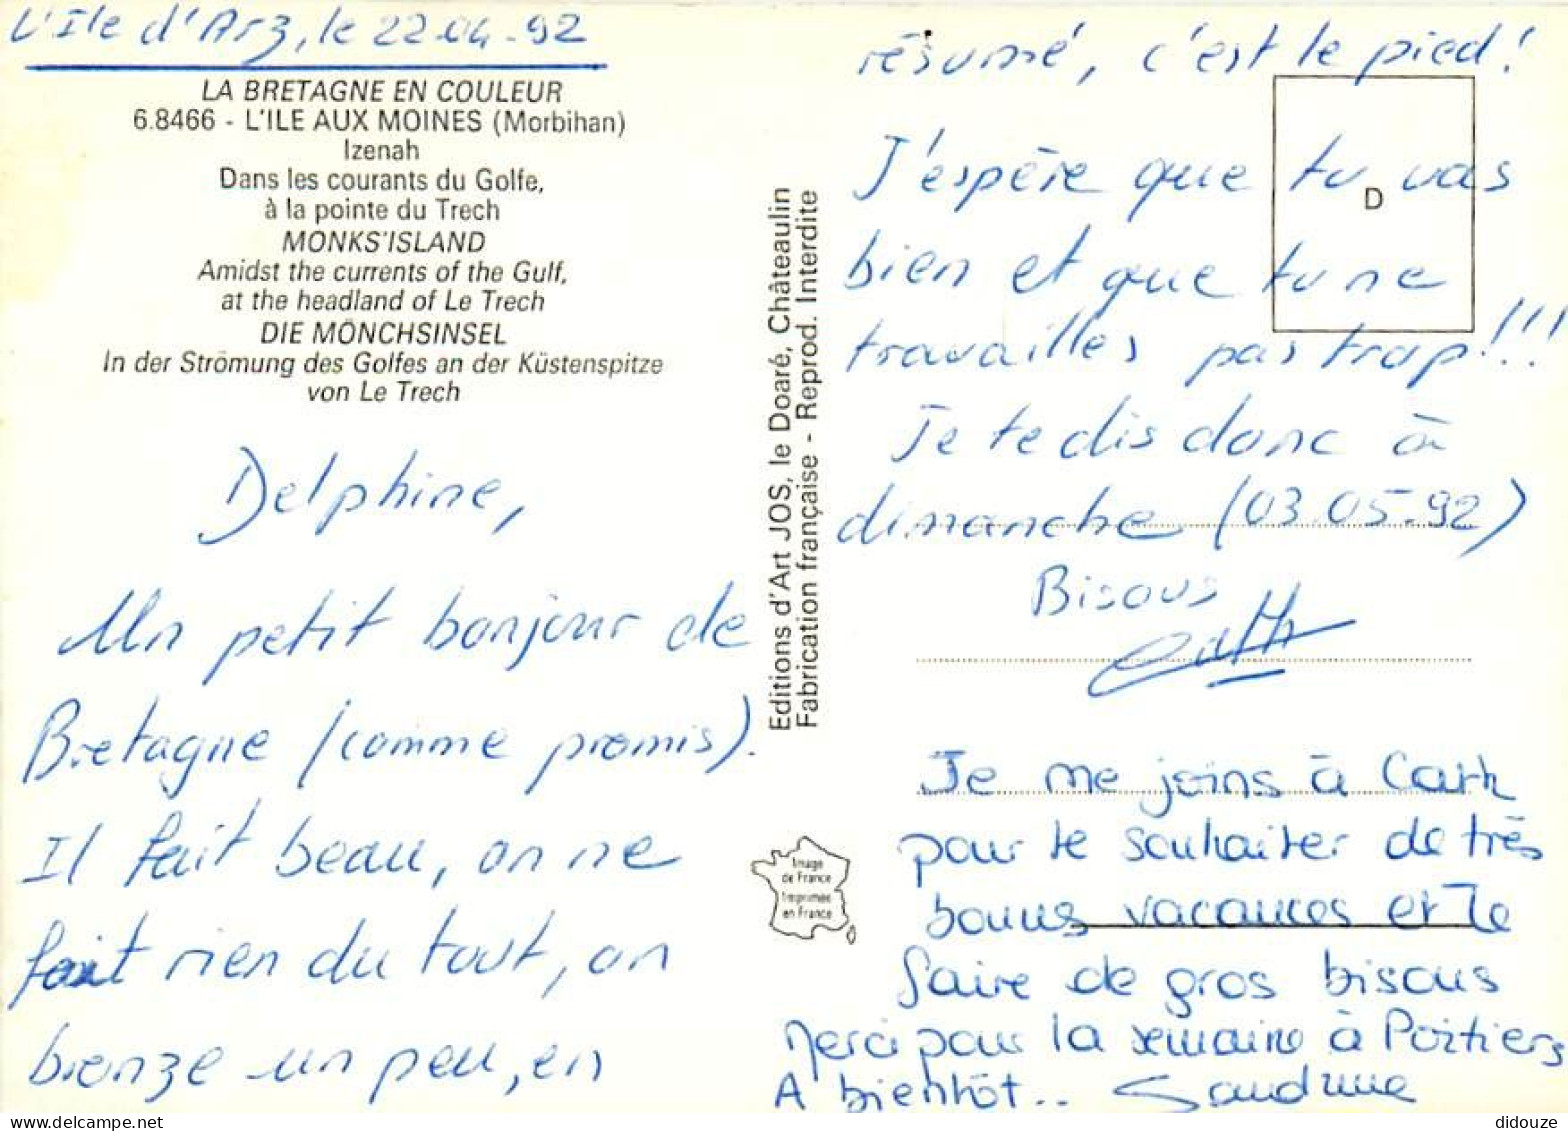 L'Ile d'Arz, le 22.04.92
LA BRETAGNE EN COULEUR
6.8466 - L'ILE AUX MOINES (Morbihan)
Izenah
Dans les courants du Golfe,
à la pointe du Trech
MONKS'ISLAND
Amidst the currents of the Gulf,
at the headland of Le Trech
DIE MÖNCHSINSEL
In der Strömung des Golfes an der Küstenspitze
von Le Trech
Delphine,
Un petit bonjour de
Bretagne (comme promis).
Il fait beau, on ne
fait rien du tout, on
bronze un peu, en
Editions d'Art JOS, le Doaré, Châteaulin
Fabrication française - Reprod. Interdite
Image
de France
Imprimée
en France
résumé, c'est le pied!
D
J'espère que tu vas
bien et que tu ne
travailles pas trop!!!
Je te dis donc à
dimanche (03.05.92)
Bisous
Cath
Je me joins à Cath
pour te souhaiter de très
bonnes vacances et te
faire de gros bisous
Merci pour la semaine à Poitiers
A bientôt.. Sandrine
didouze